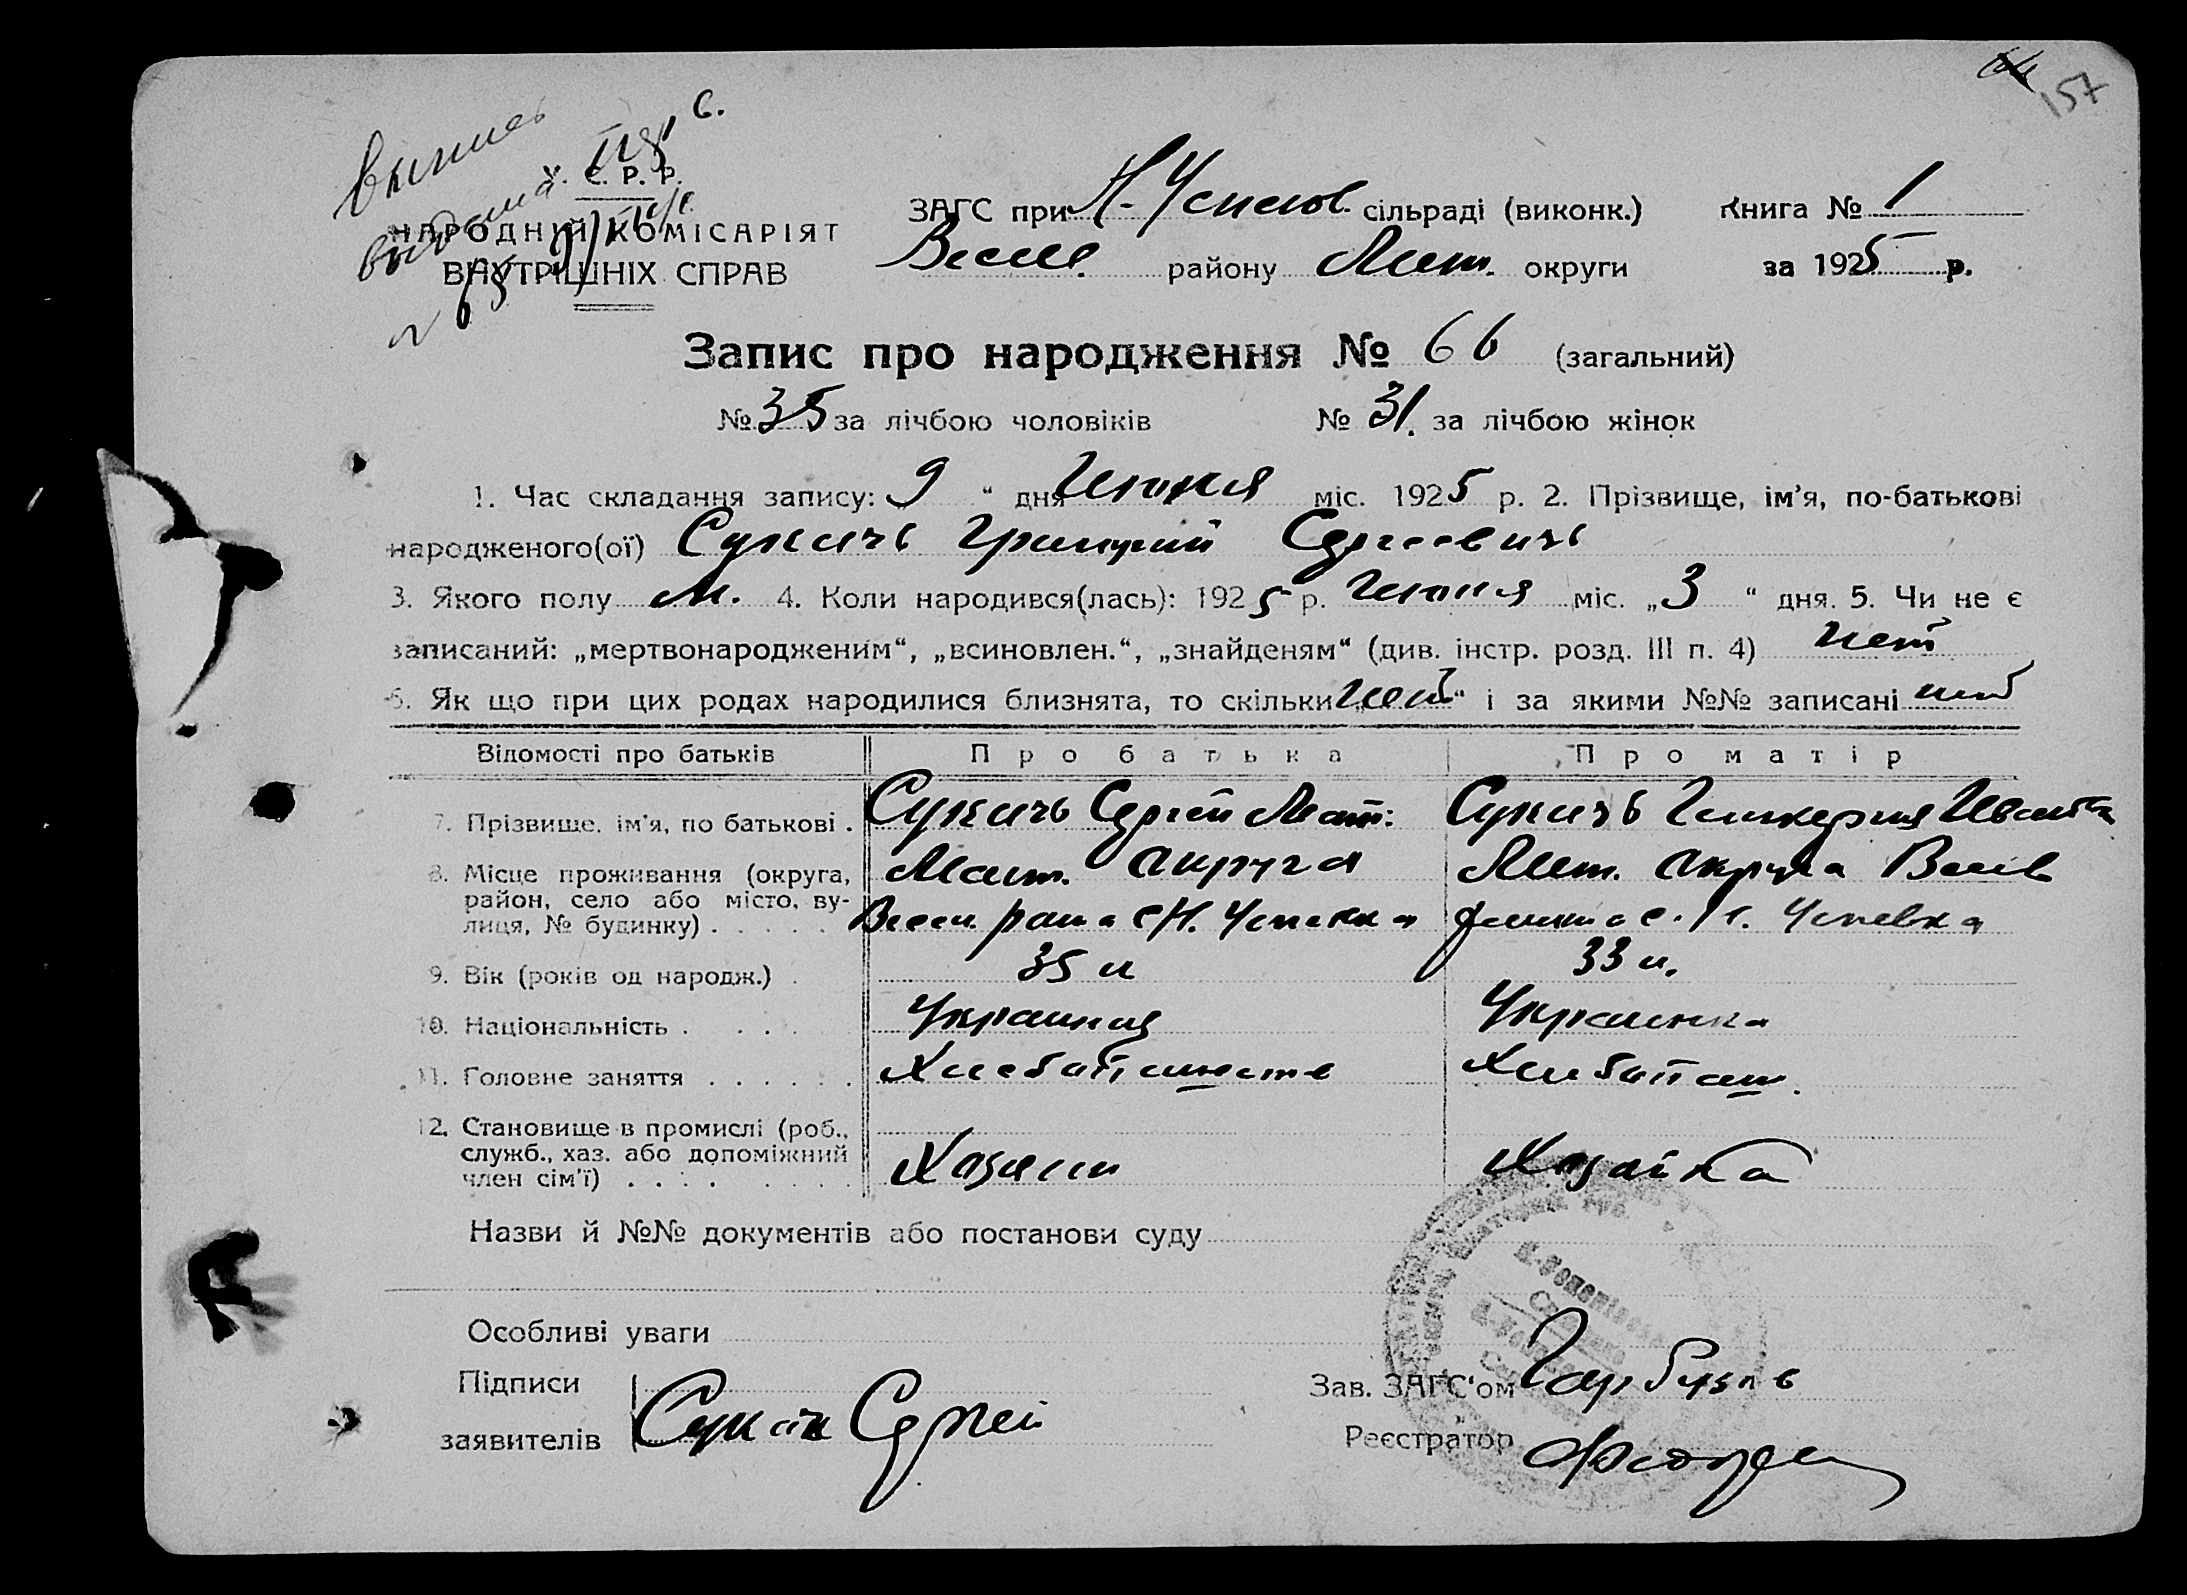 157
У. С. Р. Р.
НАРОДНИЙ КОМІСАРІЯТ
ВНУТРІШНІХ СПРАВ
ЗАГС при Н-Успенов. сільраді (виконк.) Книга № 1
Весел. району Мелит. округи за 1925 р.
Запис про народження № 66 (загальний)
№ 35 за лічбою чоловіків № 31. за лічбою жінок
1. Час складання запису: „ 9 “ дня Июня міс. 1925 р. 2. Прізвище, ім’я, по-батькові
народженого(ої) Сукачь Григорий Сергеевичь
3. Якого полу м. 4. Коли народився(лась): 1925 р. Июня міс. „ 3 “ дня. 5. Чи не є
записаний: „мертвонародженим“, „всиновлен.“, „знайденям“ (див. інстр. розд. III п. 4) нет
6. Як що при цих родах народилися близнята, то скільки „нет“ і за якими №№ записані нет
Відомості про батьків Про батька Про матір
7. Прізвище, ім’я, по батькові . Сукачь Сергей Мат: Сукачь
8. Місце проживання (округа, Мелит. округа Мелит. округа Весел
район, село або місто, ву- Весел. района с Н. Успенка района с. Н. Успенка
лиця, № будинку) . . . . .
9. Вік (років од народж.) . 35 л 33 л.
10. Національність . . . . Украинец Украинка
11. Головне заняття . . . . . . Хлебопашество Хлебопаш.
12. Становище в промислі (роб.,
служб., хаз. або допоміжний Хозяин Хозяйка
член сім’ї) . . . . . . . .
Назви й №№ документів або постанови суду
Особливі уваги
Підписи Зав. ЗАГС‘ом Гарбузъ
заявителів Сукач Сергей Реєстратор